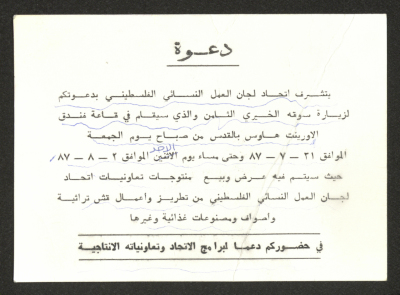 دعوة
يتشرف اتحاد لجان العمل النسائي الفلسطيني بدعوتكم
لزيارة سوقه الخيري الثامن والذي سيقام في قاعة فندق
الاورينت هاوس بالقدس من صباح يوم الجمعة
الاحد
الموافق ٣١ - ٧ - ٨٧ وحتى مساء يوم الاثنين الموافق ٢ - ٨ - ٨٧
حيث سيتم فيه عرض وبيع منتوجات تعاونيات اتحاد
لجان العمل النسائي الفلسطيني من تطريز واعمال قش تراثية
واصواف ومصنوعات غذائية وغيرها
في حضوركم دعما لبرامج الاتحاد وتعاونياته الانتاجية